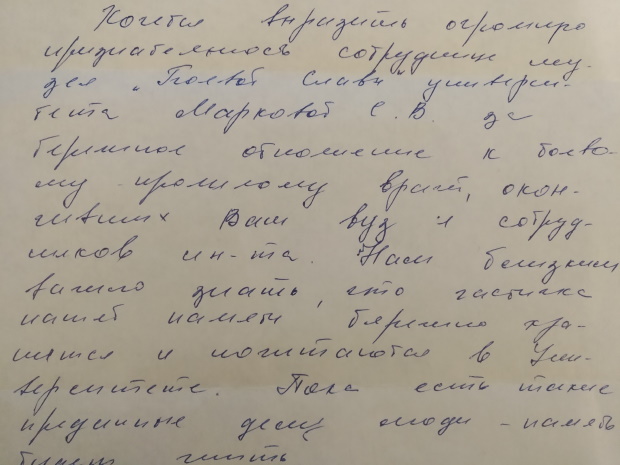 Хочется выразить огромную
признательность сотруднице му-
зея "Боевой Славы" универси-
тета Марковой С. В. за
бережное отношение к боево-
му прошлому врачей, окон-
чивших Ваш вуз и сотруд-
ников ин-та. Нам близким
важно знать, что частичка
нашей памяти бережно хра-
нятся и почитаются в Уни-
верситете. Пока есть такие
преданные делу люди - память
будет жить